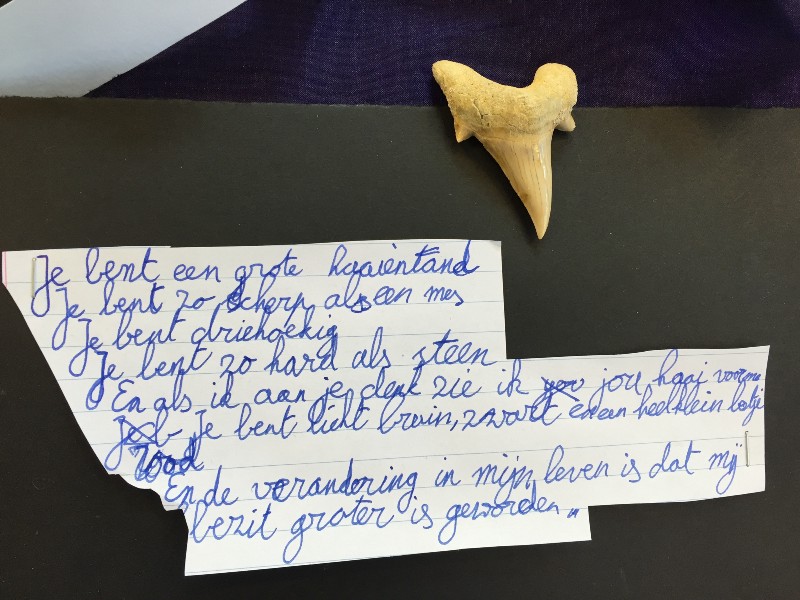 Je bent een grote haaiëntand
Je bent zo scherp als een mes
Je bent driehoekig
Je bent zo hard als steen
En als ik aan je denk zie ik jou, haai voor me
Je bent licht bruin, zwart en een heel klein botje
Rood
En de verandering in mijn leven is dat mij
bezit groter is geworden„